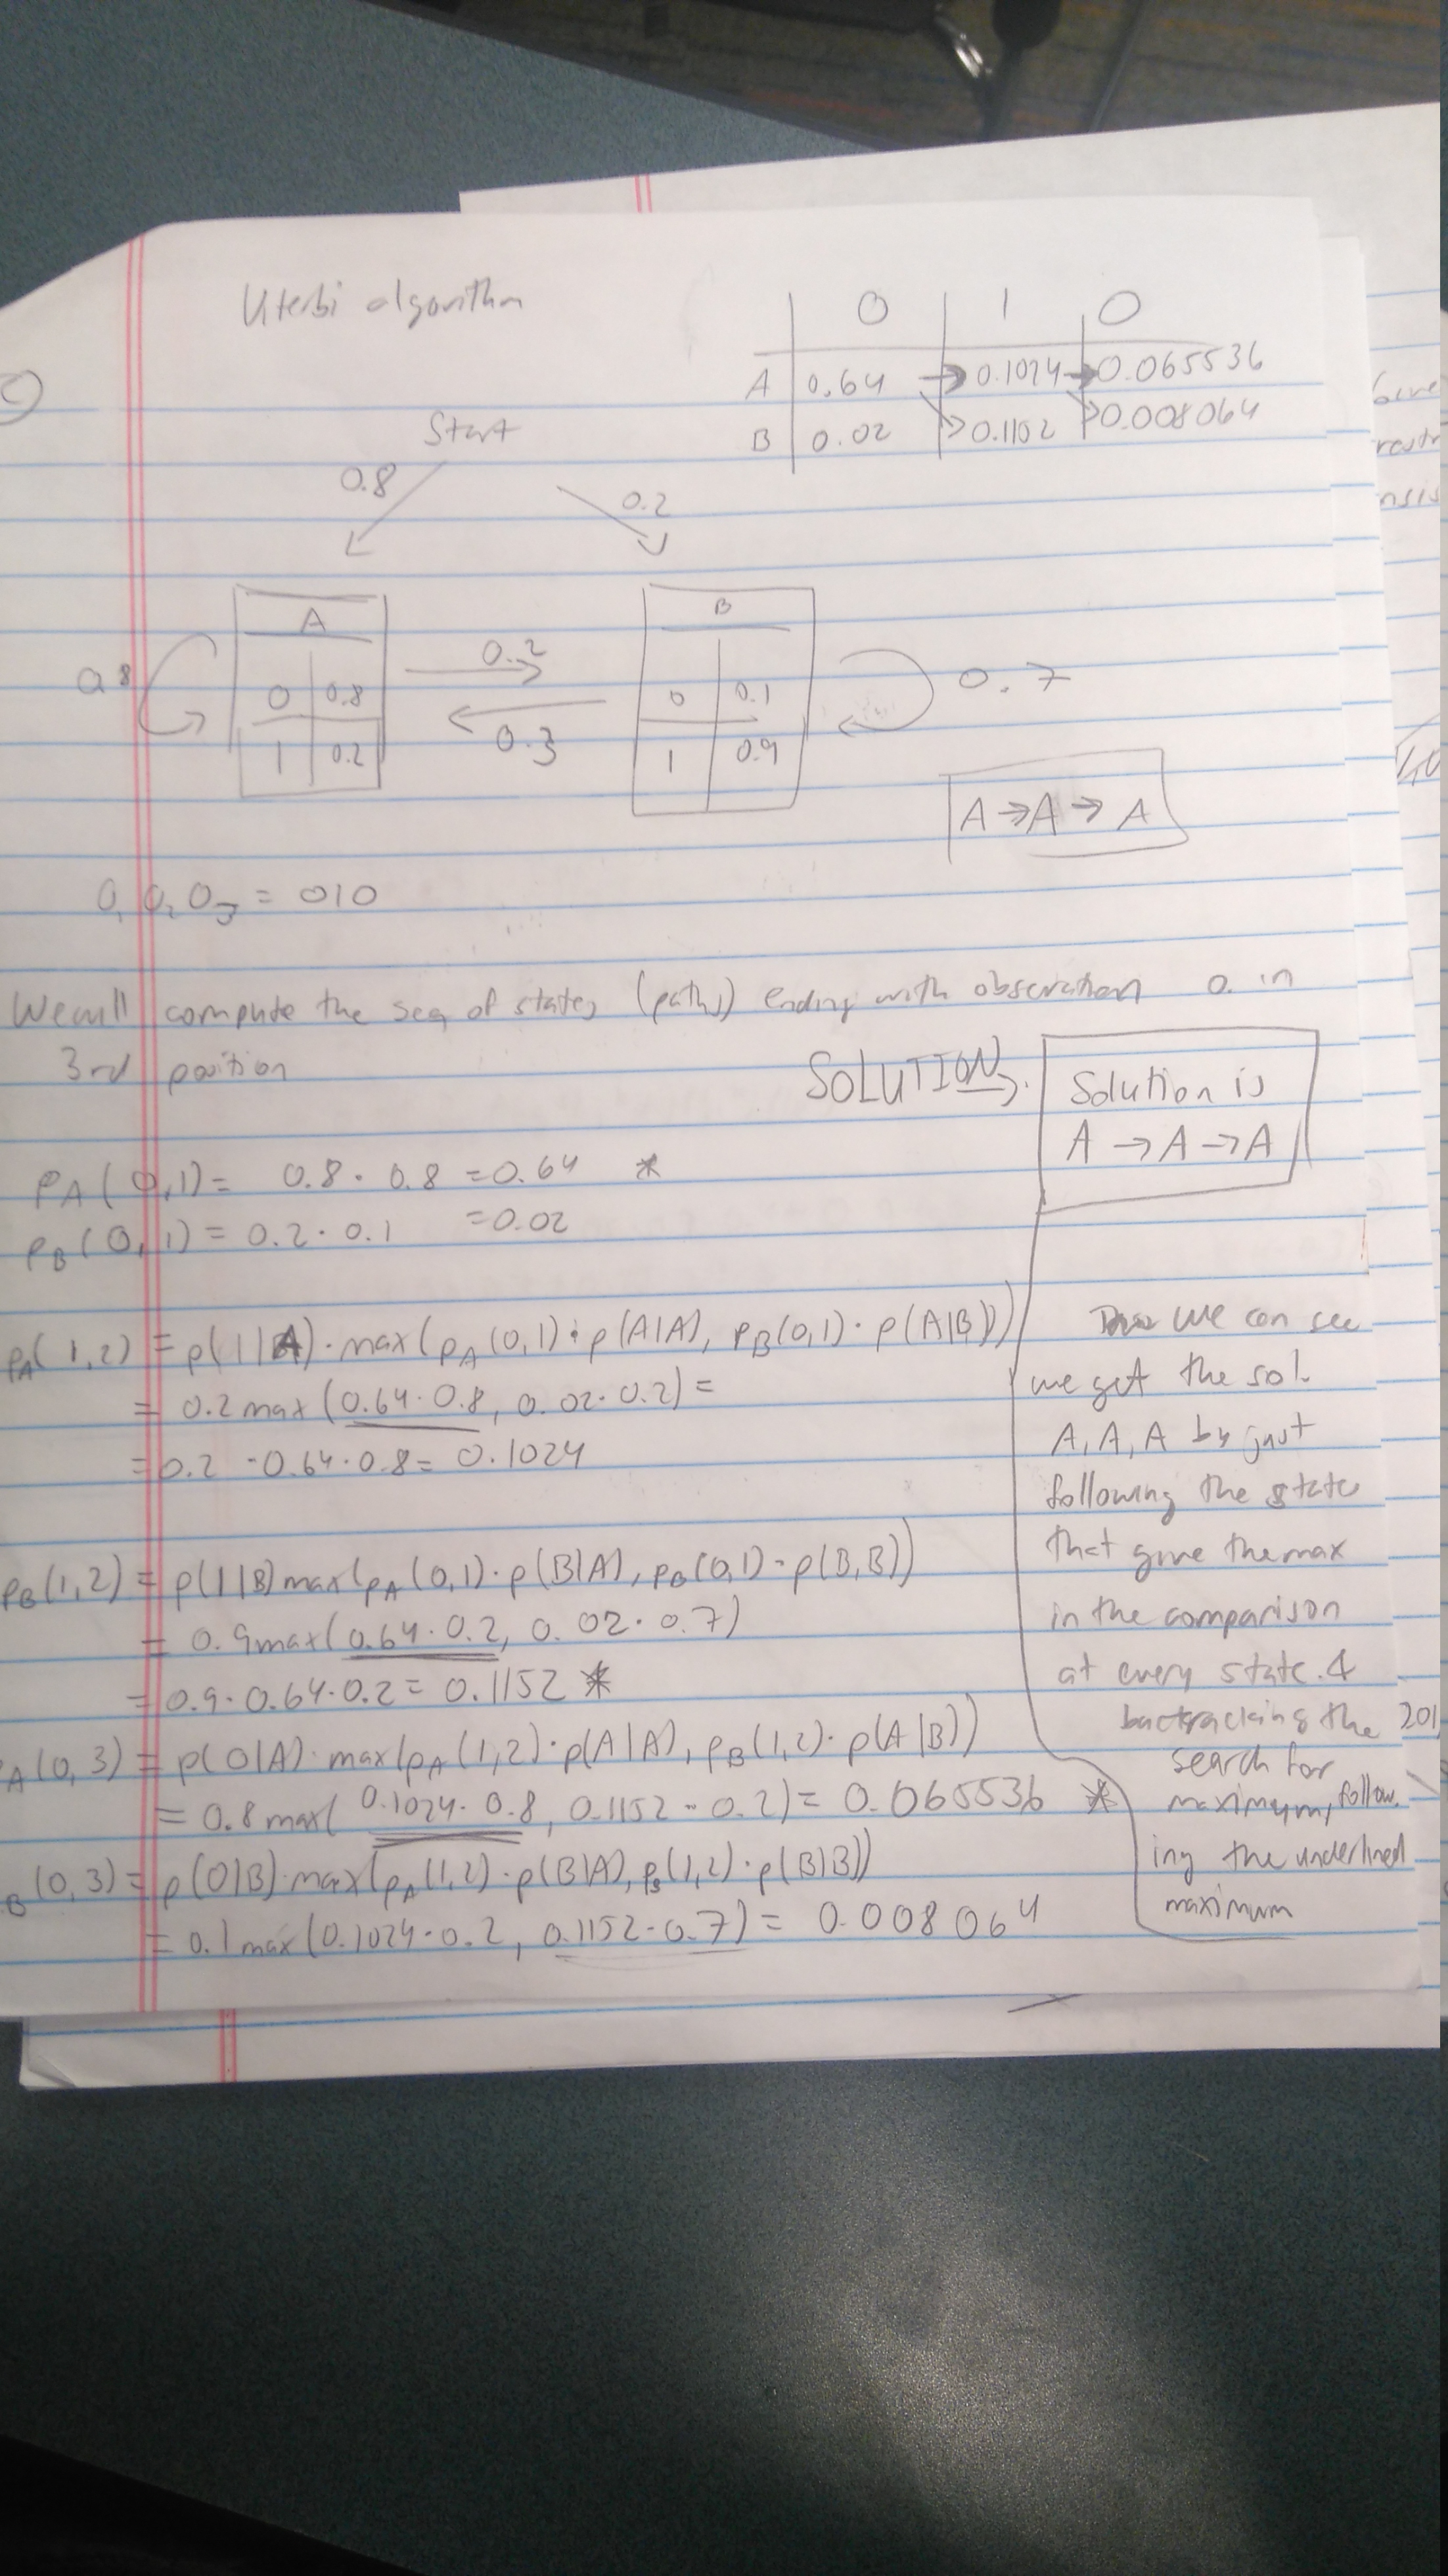 Viterbi algorithm
0 | 1 | 0
A | 0.64 → 0.1024 → 0.065536
B | 0.02 0.1102 0.008064
c)
Start
0.8
0.2
A
B
0.8
0 | 0.8
1 | 0.2
0.2
0.3
0 | 0.1
1 | 0.9
0.7
A → A → A
O₁ O₂ O₃ = 010
We will compute the seq of states (paths) ending with observation 0 in
3rd position
SOLUTION →
Solution is
A → A → A
PA(0,1) = 0.8 · 0.8 = 0.64 *
PB(0,1) = 0.2 · 0.1 = 0.02
PA(1,2) = p(1|A) · max(PA(0,1) · p(A|A), PB(0,1) · p(A|B))
= 0.2 max(0.64 · 0.8, 0.02 · 0.2) =
= 0.2 · 0.64 · 0.8 = 0.1024
PB(1,2) = p(1|B) max(PA(0,1) · p(B|A), PB(0,1) · p(B,B))
= 0.9 max(0.64 · 0.2, 0.02 · 0.7)
= 0.9 · 0.64 · 0.2 = 0.1152 *
A(0,3) = p(0|A) · max(PA(1,2) · p(A|A), PB(1,2) · p(A|B))
= 0.8 max(0.1024 · 0.8, 0.1152 · 0.2) = 0.065536 *
B(0,3) = p(0|B) · max(PA(1,2) · p(B|A), PB(1,2) · p(B|B))
= 0.1 max(0.1024 · 0.2, 0.1152 · 0.7) = 0.008064
we can see
we get the sol.
A, A, A by just
following the state
that give the max
in the comparison
at every state. &
bactracking the
search for
maximum, follow
ing the underlined
maximum
201